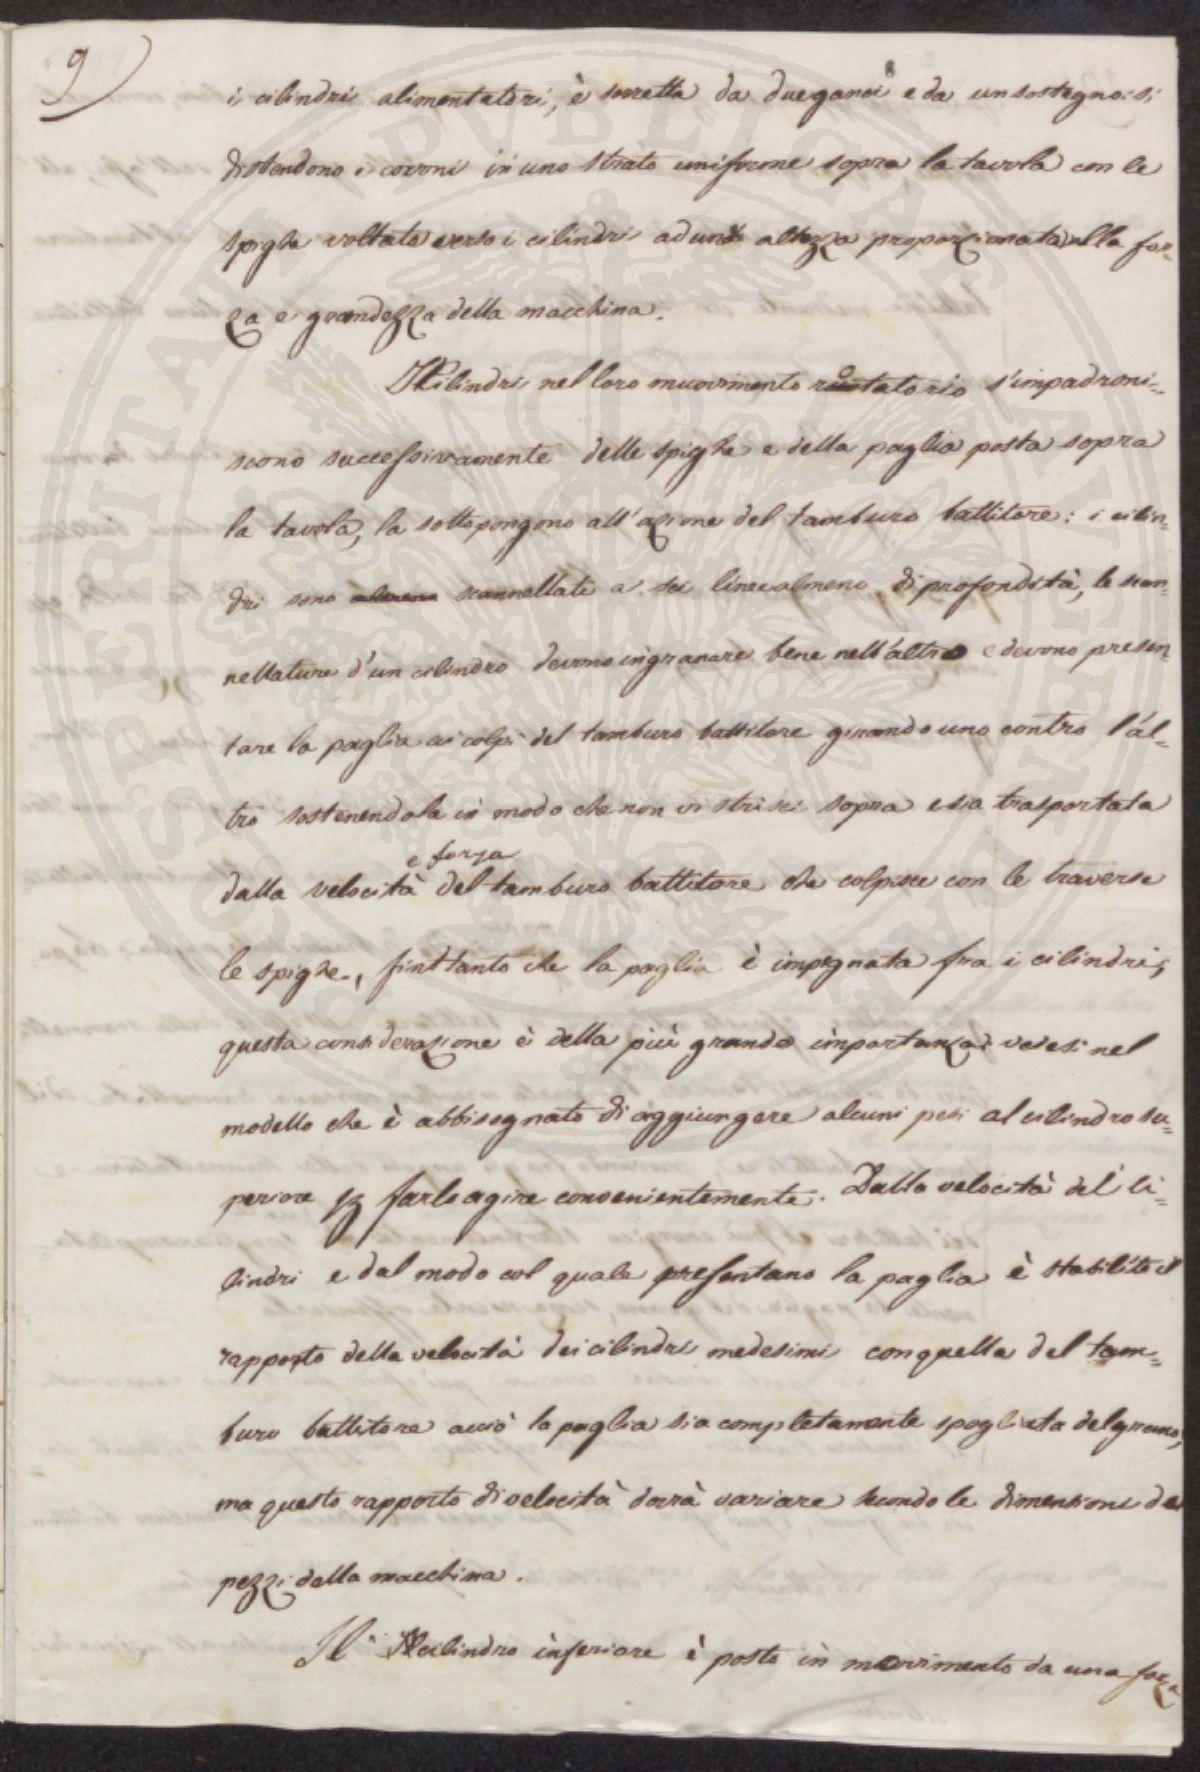 9
i cilindri alimentatori, è sorretta da due ganci e da un sostegno: si
distendono i covoni in uno strato uniforme sopra la tavola con le
spighe voltate verso i cilindri ad una altezza proporzionata alla for-
za e grandezza della macchina.
I Cilindri nel loro muovimento ruotatorio s'impadroni-
scono successivamente delle spighe e della paglia posta sopra
la tavola, la sottopongono all'azione del tamburo battitore: i cilin-
dri sono scannellati a sei linee almeno di profondità, le scan-
nellature d'un cilindro devono ingranare bene nell'altro e devono presen-
tare la paglia ai colpi del tamburo battitore girando uno contro l'al-
tro sostenendola in modo che non vi strisci sopra e sia trasportata
dalla velocità e forza del tamburo battitore che colpisce con le traverse
le spighe, finttanto che la paglia è impegnata fra i cilindri;
questa considerazione è della più grande importanza: vedesi nel
modello che è abbisognato di aggiungere alcuni pesi al cilindro su-
periore farlo agire convenientemente. Dalla velocità del ci-
lindri e dal modo col quale presentano la paglia è stabilito il
rapporto della velocità dei cilindri medesimi con quella del tam-
buro battitore acciò la paglia sia completamente spogliata del grano,
ma questo rapporto di velocità dovrà variare secondo le dimensioni de
pezzi della macchina.
Il cilindro inferiore è posto in movimento da una forza
PERITATI PUBLICAE